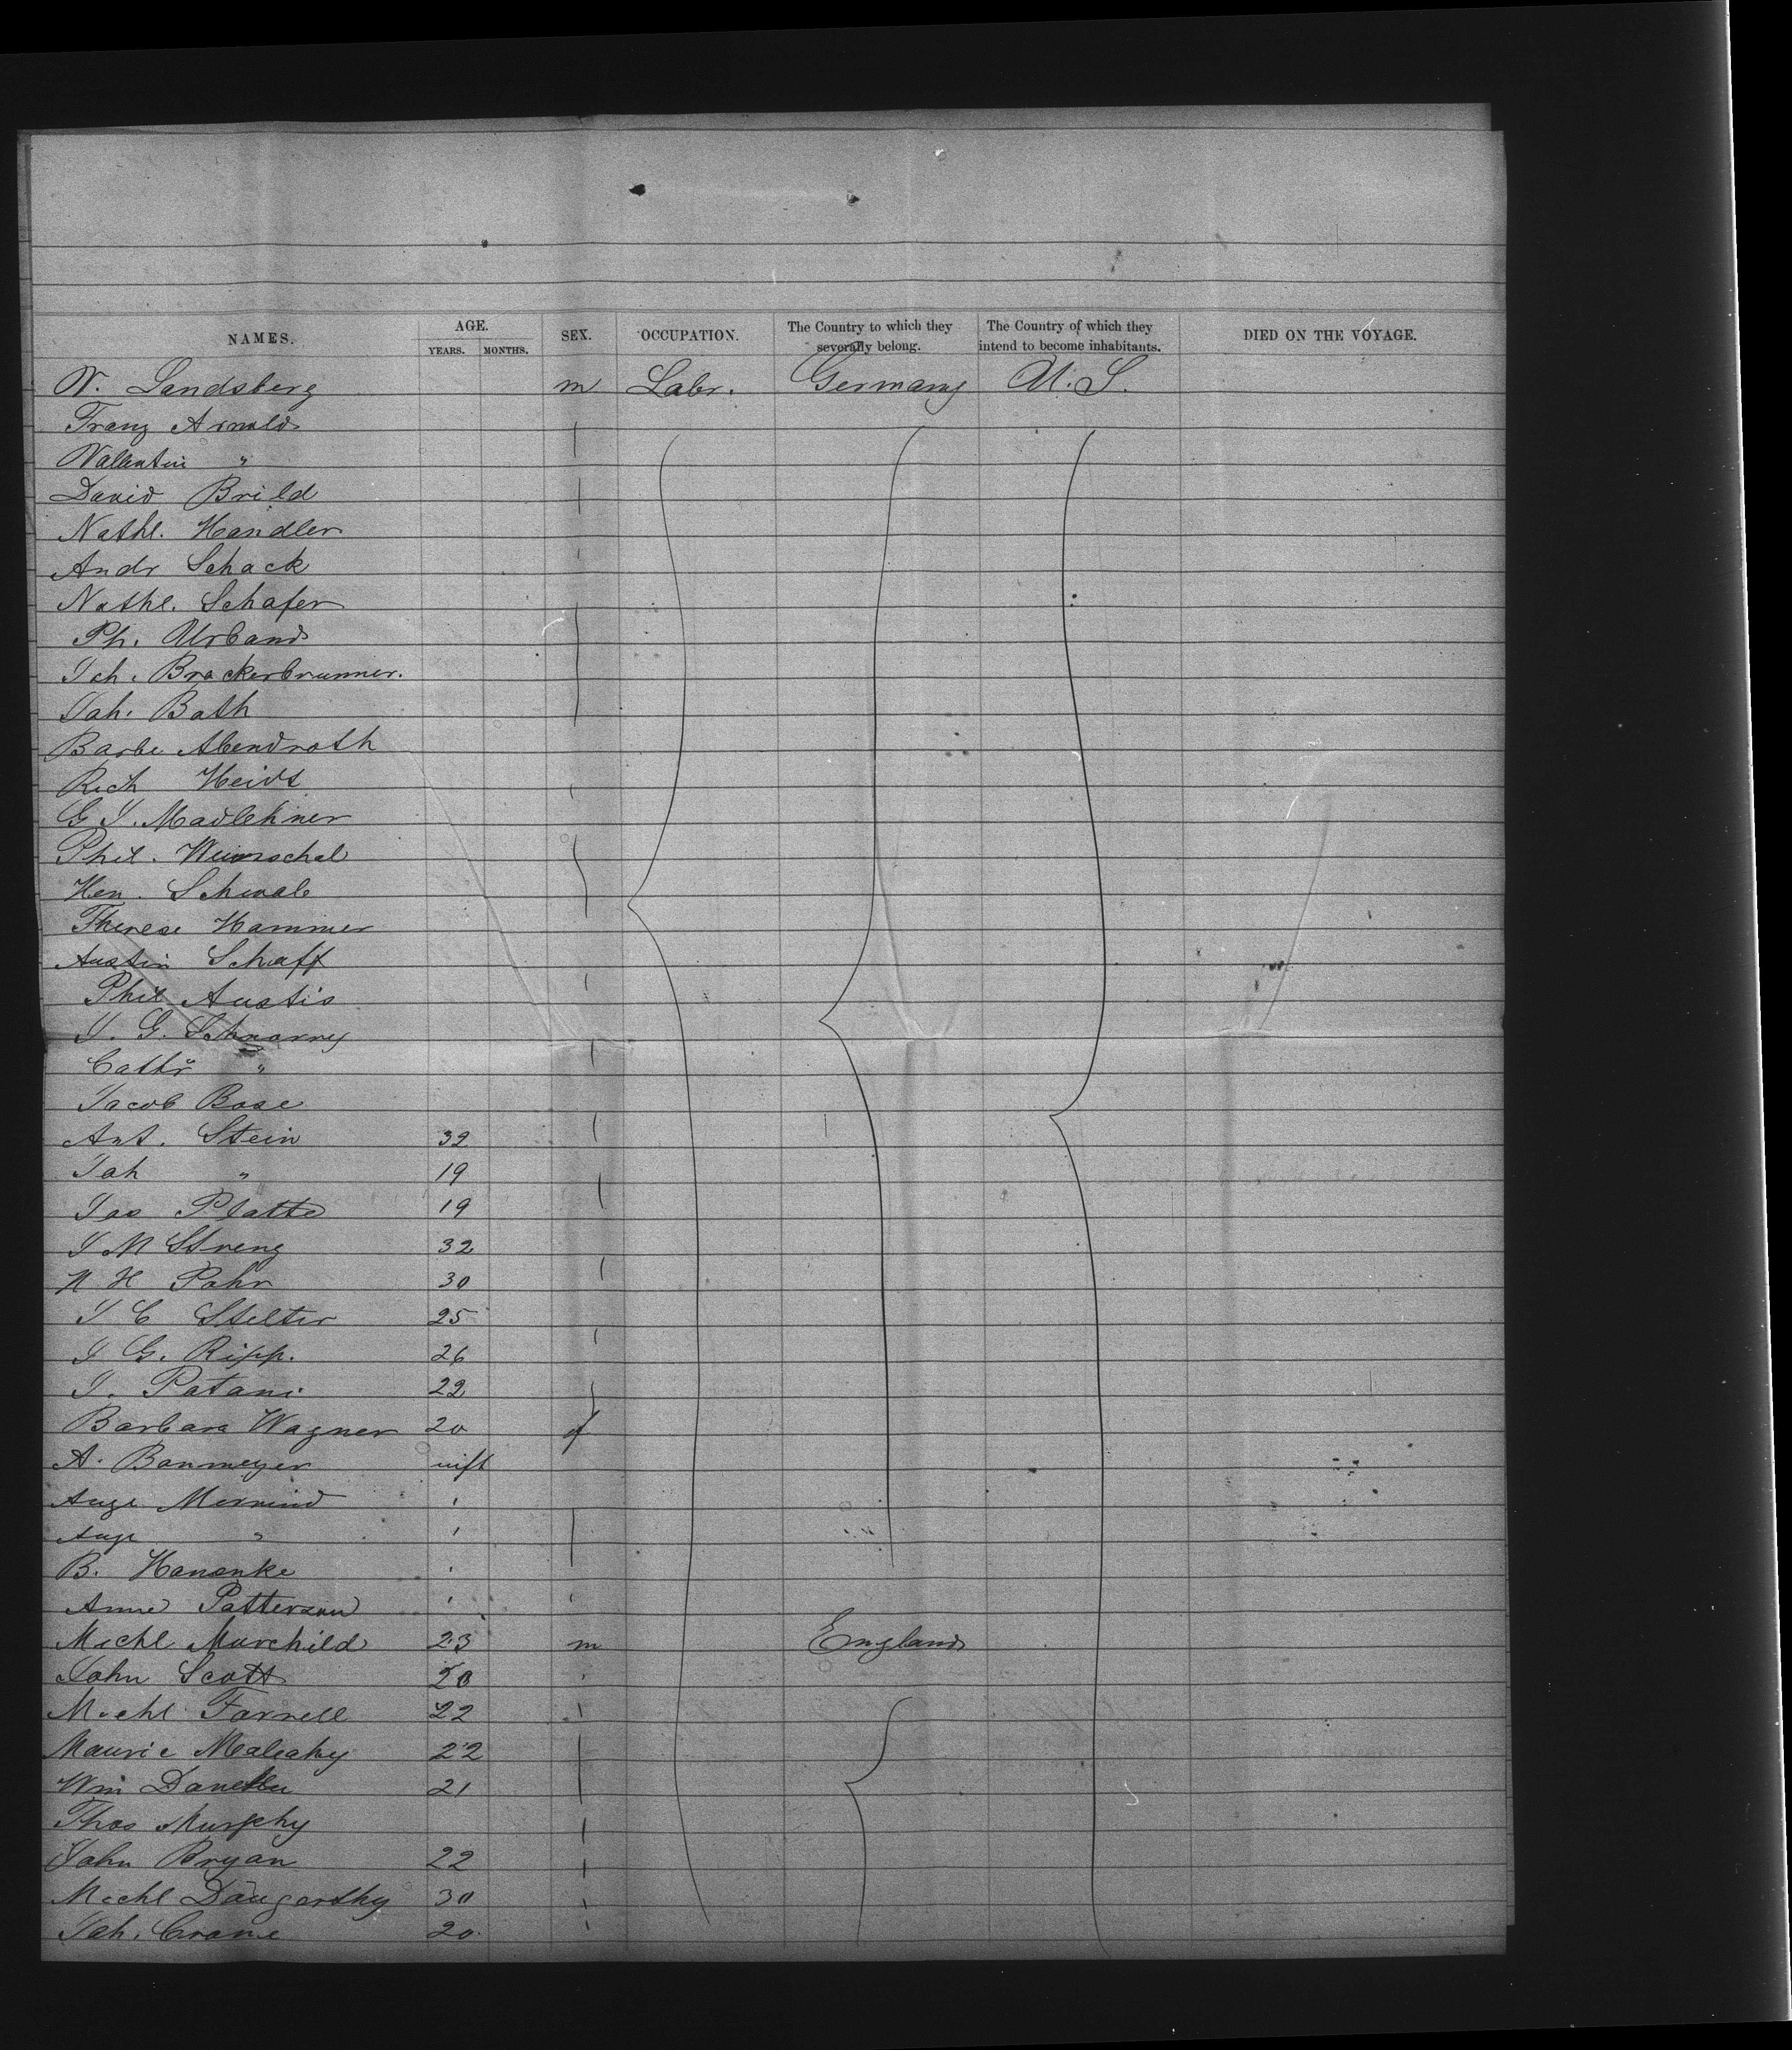 NAMES. AGE. YEARS. MONTHS. SEX. OCCUPATION. The Country to which they severally belong. The Country of which they intend to become inhabitants. DIED ON THE VOYAGE.
N. Landsberg m Labr. Germany U.S.
Franz Arnold
Valentin "
David Brild
Nathl. Handler
Andr Schack
Nathl. Schafer
Ph. Urband
Joh. Brackerbrunner.
Joh. Bath
Barbe Abendroth
Rich Heidt
G J. Madlehner
Phil.
Hen. Schwab
Therese Hammer
Austin Schaff
Phil Austis
J. G.
Cathr "
Jacob Bose
Ant. Stein 32
Joh " 19
Jas Platte 19
J M Streng 32
N H Pohr 30
J C Stelter 25
J G. Ripp. 26
J. Patani 22
Barbara Wagner 20 f
A. Banmeyer inft
Auge
Auge "
B. Hanonke
Anne Patterson
Michl Murchild 23 m England
John Scott
Michl Farrell 22
Mauric Maleahy 22
Wm 21
Thos Murphy
John Bryan 22
Michl Daugerthy 30
Joh. Crane 20